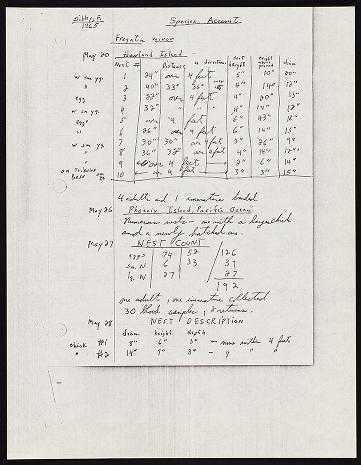 Sibley, F. Species Account
1965
Fregata minor
May 20 Howland Island
Nest # Distance + direction nest height height above ground diam
w sm yg. 1 24" over 4 feet 5" 10" 20"
" 2 40" 33" 36" 4" 14" 12"
egg 3 22" over 4 feet 4" 20" 13"
w sm yg. 4 32" " " " 4" 14" 12"
egg 5 over 4 feet 6"
" 6 26" 6" 14" 15"
w sm yg. 7 30" 30" on 4 feet 3" 26" 9"
" 8 36" 32" on 4 feet 4"
" 9 over 4 feet 2" 6" 14"
on Tribulus 10 over 4 feet 3" 3" 15"
Base
4 adults and 1 immature banded
May 26 Phoenix Island, Pacific Ocean
Numerous nests - one with a large chick
and a newly hatched one.
May 27 NEST COUNT
eggs 74 52 126
sm. N 6 33 39
lg. N 27 27
192
one adult, one immature collected
30 blood samples, 9 returns.
May 28 NEST DESCRIPTION
diam. height depth
chick #1 8" 6" 3" - none within 4 feet
" #2 14" 7" 3" - " " "